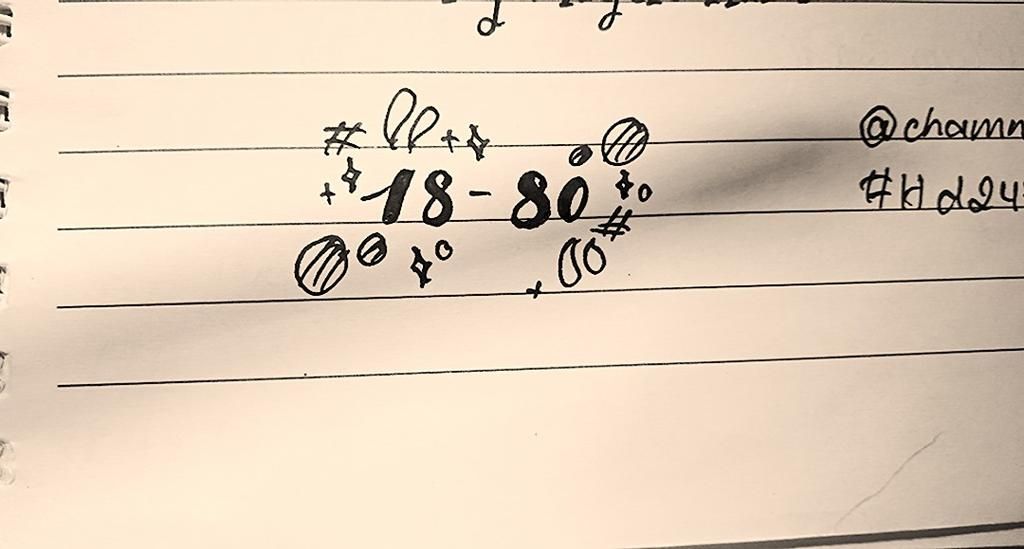 18-80
@chamn
#Hd24